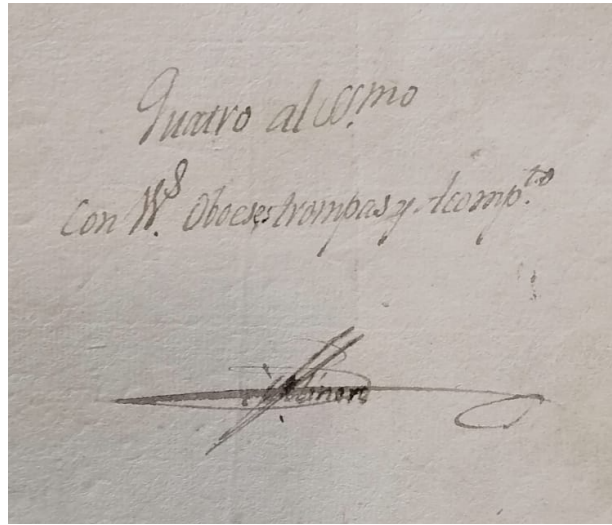 Quatro al SS.mo
Con VV.s Oboeses trompas y Acomp.to